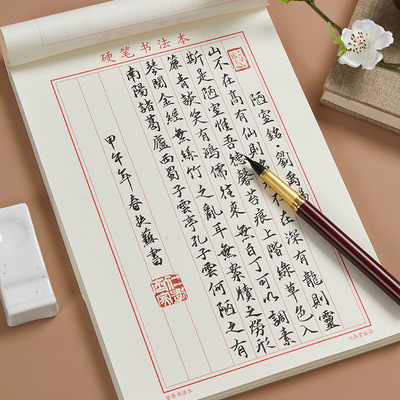 硬笔书法本
陋室銘·劉禹錫
山不在高有仙則不在深有龍則靈
斯是陋室惟吾德馨苔痕上階綠草色入
簾青談笑有鴻儒往來無白丁可以調素
琴閱金經無絲竹之亂耳無案牘之勞形
南陽諸葛廬西蜀子雲亭孔子雲何陋之有
甲午年春於蘇書